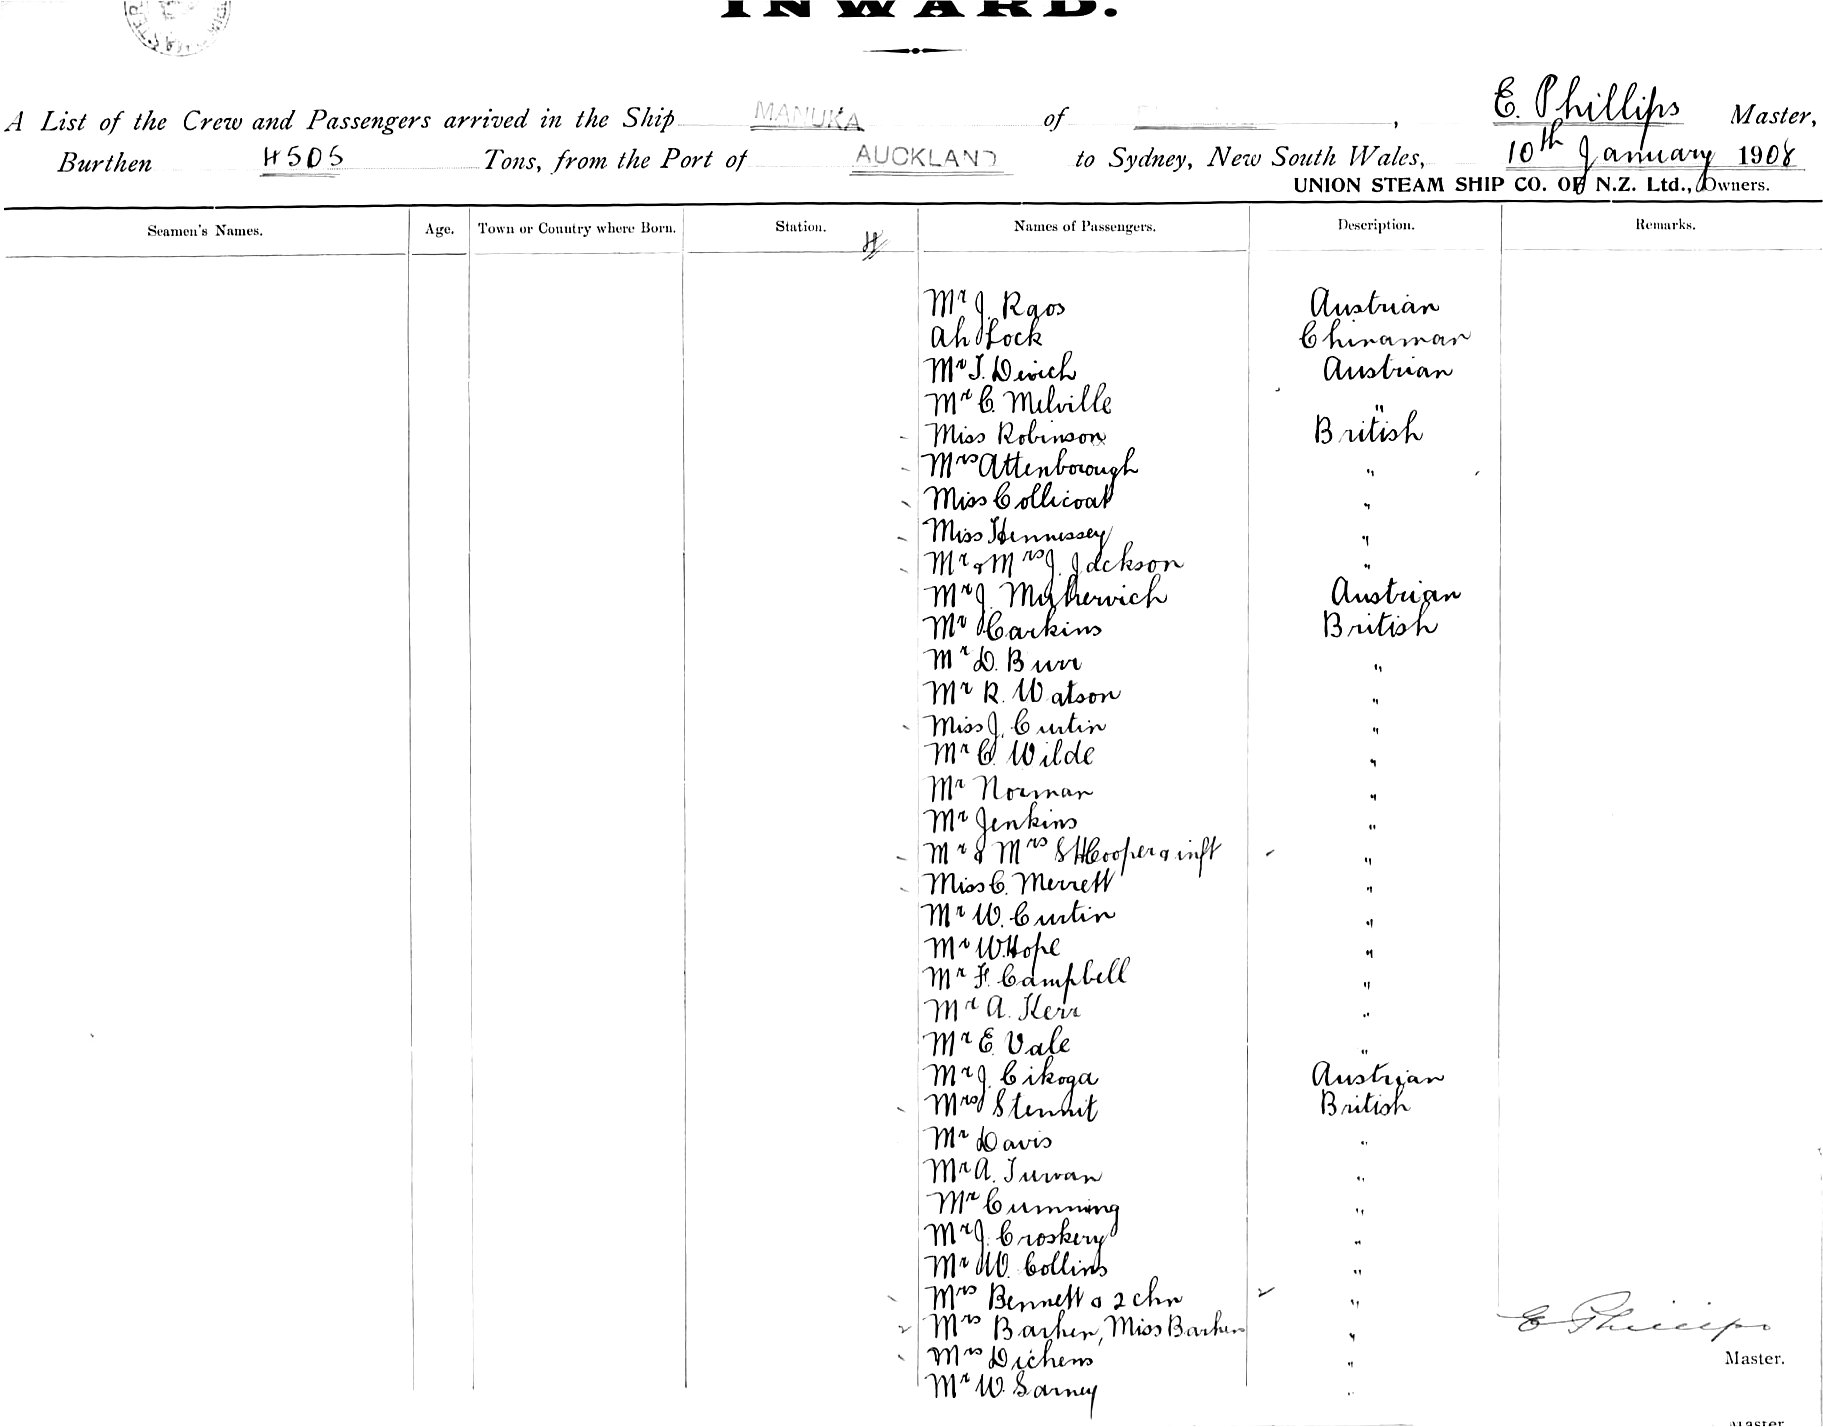 INWARD.
A List of the Crew and Passengers arrived in the Ship MANUKA of , E. Phillips Master,
Burthen 4505 Tons, from the Port of AUCKLAND to Sydney, New South Wales, 10th January 1908
UNION STEAM SHIP CO. OF N.Z. Ltd., Owners.
Seamen's Names. Age. Town or Country where Born. Station. Names of Passengers. Description. Remarks.
4
Mr J. Raos Austrian
Ah Lock Chinaman
Mr J. Divich Austrian
Mr C. Melville "
Miss Robinson British
Mrs Attenborough "
Miss Collicoat "
Miss Hennessey "
Mr & Mrs J. Jackson "
Mr J. Austrian
Mr Carkins British
Mr D. Burr "
Mr R. Watson "
Miss J. Curtin "
Mr C. Wilde "
Mr Norman "
Mr Jenkins "
Mr & Mrs S H Cooper & inft "
Miss C. Merrett "
Mr W. Curtin "
Mr W. Hope "
Mr F. Campbell "
Mr A. Kerr "
Mr E. Vale "
Mr J. Cikoga Austrian
Mrs Stennit British
Mr Davis "
Mr A. "
Mr Cumming "
Mr J. Croskery "
Mr W. Collins "
Mrs Bennett & 2 chn "
Mrs Barker, Miss Barker "
E Phillips
Mrs Dickens "
Master.
Mr W. Sarney "
Master